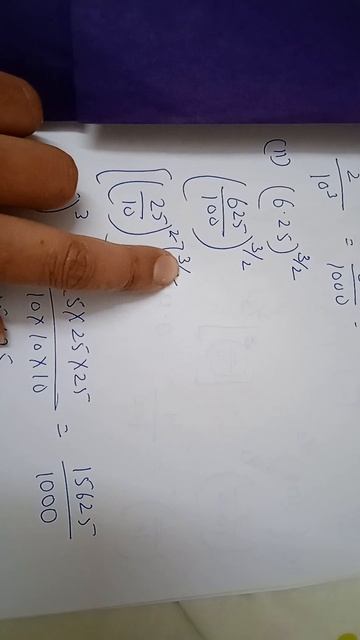 2/10³ = /1000 =
(ii) (6.25)^3/2
(625/100)^3/2
[(25/10)²]^3/
)³
5×25×25/10×10×10 = 15625/1000
5